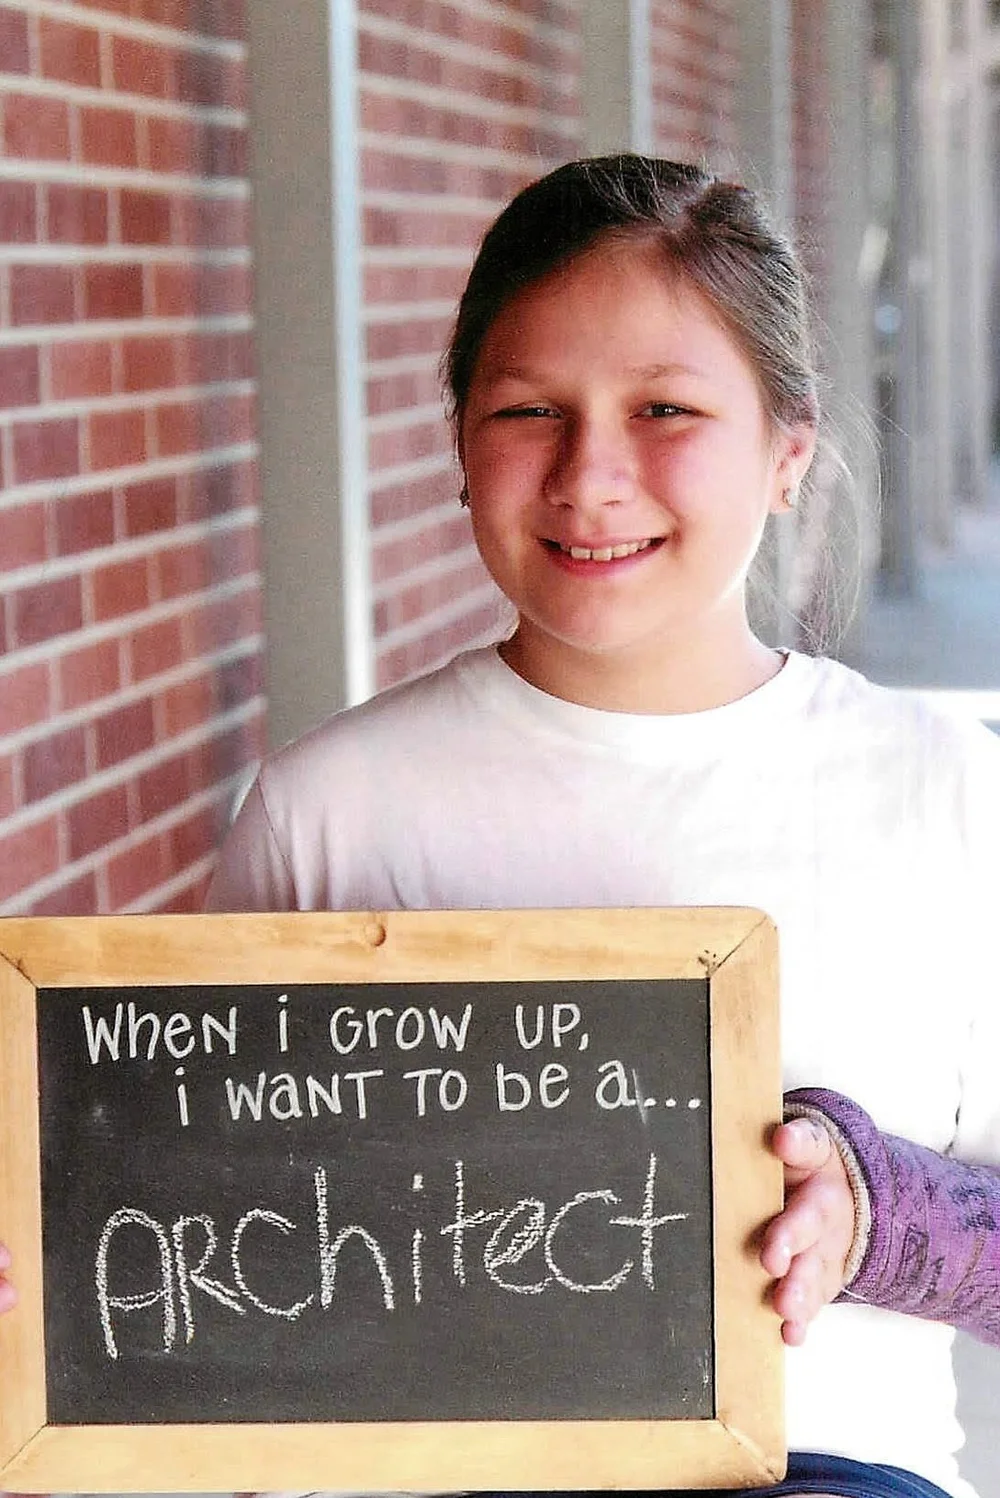 When i Grow UP,
i WaNT TO be a...
ARChiteCt